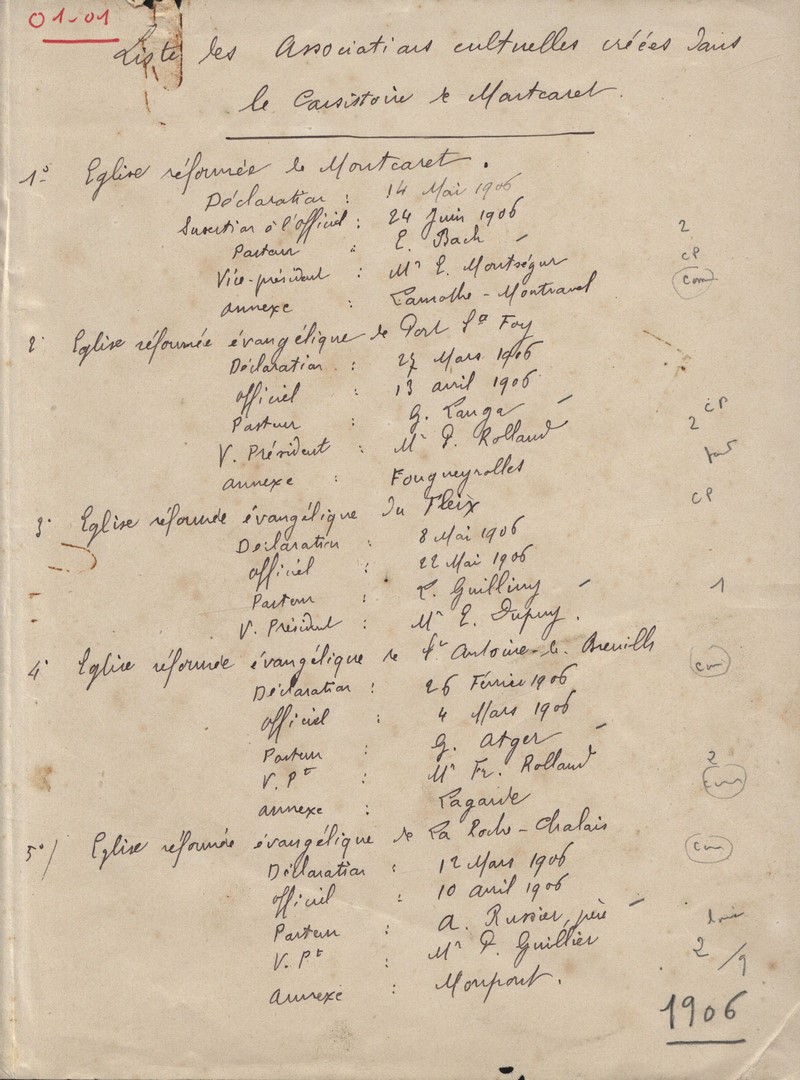 01-01
Liste des Associations cultuelles créées dans
le Consistoire de Montcaret.
1° Eglise réformée de Montcaret.
Déclaration : 14 Mai 1906
Insertion à l'officiel : 24 Juin 1906
Pasteur : E. Bach – 2
Vice-président : Mr E. Montségur CP
annexe : Lamothe-Montravel com
2° Eglise réformée évangélique de Port Ste Foy
Déclaration : 27 Mars 1906
officiel : 13 avril 1906
Pasteur : G. Langa – CP
V. Président : Mr P. Rolland 2
annexe : Fougueyrolles
3° Eglise réformée évangélique du Fleix CP
Déclaration : 8 Mai 1906
officiel : 22 Mai 1906
Pasteur : L. Guilliny – 1
V. Président : Mr E. Dupuy.
4° Eglise réformée évangélique de St Antoine-de-Breuilh com
Déclaration : 26 Février 1906
officiel : 4 Mars 1906
Pasteur : G. Atger –
V. Pt : Mr Fr. Rolland 2
annexe : Lagarde com
5°/ Eglise réformée évangélique de La Roche-Chalais com
Déclaration : 12 Mars 1906
officiel : 10 avril 1906
Pasteur : A. Russier, père –
V. Pt : Mr P. Guillier 2/9
Annexe : Monpont.
1906